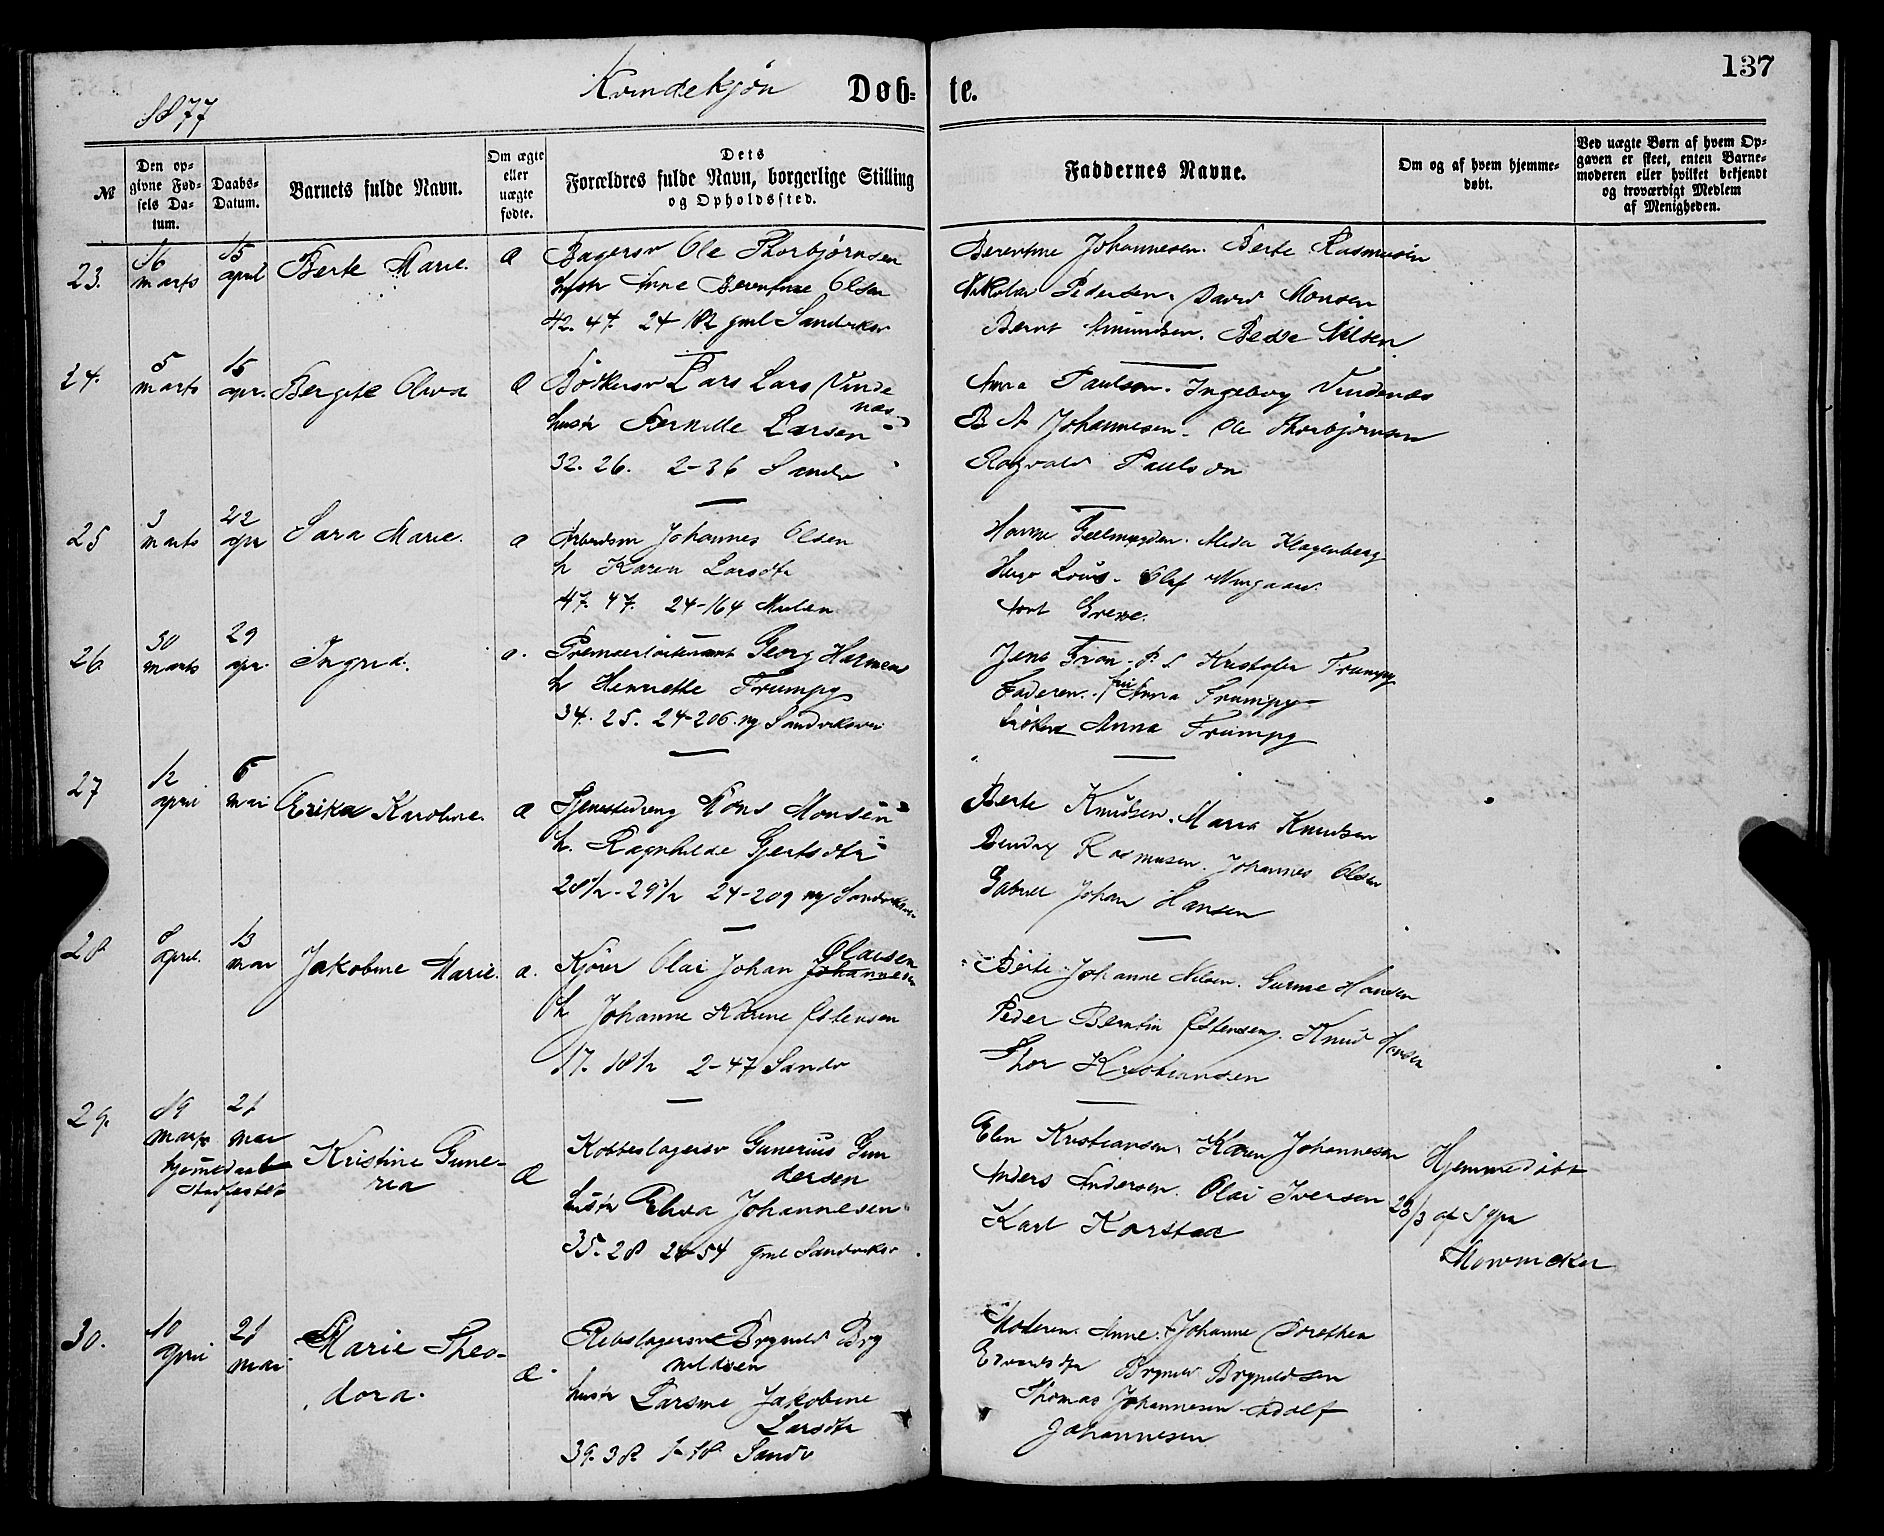 137
Kvindekjøn Døb- te.
1877
№
Den op-
givne Fød-
sels Da-
tum.
Daabs-
Datum.
Barnets fulde Navn.
Om ægte
eller
uægte
fødte.
Dets
Forældres fulde Navn, borgerlige Stilling
og Opholdssted.
Faddernes Navne.
Om og af hvem hjemme-
døbt.
Ved uægte Børn af hvem Op-
gaven er skeet, enten Barne-
moderen eller hvilket bekjendt
og troværdigt Medlem
af Menigheden.
23.
16
marts
15
april
Berte Marie.
æ
Bagersv Ole Thorbjørnsen
hustr Anne Berentine Olsen
42. 47. 24 182 gml Sandvikav
Berentine Johannesen. Berte Rasmusen
Nikolai Pedersen. David Monsen
Bernt Amundsen. Bedde Nilsen
24.
5
marts
15
apr.
Bergite Oliva
æ
Bødkersv Lars Lars Vinde
næs
hustr Pernille Larsen
32. 26. 2-36 Sandv
Anna Paulson. Ingeborg Vindenæs
B A Johannesen. Ole Thorbjørnsen
Ragvald Paulson
25
3
marts
22
apr
Sara Marie.
æ
Arbeidsm Johannes Olsen
h Karen Larsdtr
47. 47. 24-164 Mulen
Hanne Geelmuyden. Meda Klagenberg
Hugo Louis. Olaf
Grewe.
26
30
marts
29
apr.
Ingrid.
æ.
Premierløitenant Georg Harmens
h Henriette Trumpy
34. 25. 24-206 ny Sandviksvei
Jens Fron. P. S Kristofer Trumpy
Faderen. fru Anna Trumpy
frøken Anna Trumpy
27
12
april
6
mai
Erika Karoline.
æ
Tjenestedreng Mons Monsen
h. Ragnhilde Gjertsdtr
28½-29½ 24-209 ny Sandviksvei
Berte Knudsen. Maria Knudsen
Bendix Rasmusen. Johannes Olsen
Gabriel Johan Hansen
28
8
april.
13
mai
Jakobine Marie.
æ.
Olausen
Kjører Olai Johan Johannesen
h Johanne Karine Østensen
17. 18½ 2-47 Sandv
Berte Johanne Nilsen. Gurine Hansen
Peder Berntin Østensen. Knud Hansen
Thor Kristiansen
29.
19
marts
21
mai
hjemmedaab
stadfestet
Kristine Gune-
ria
æ
Kobberslagersv Gunerius Gun
dersen
hustr Elisa Johannesen
35. 28 24-54 gml Sandvikav
Elen Kristiansen. Karen Johannesen
Anders Andersen. Olai Iversen
Karl Karstad
Hjemmedøbt
28/3 af
Mowinckel
30.
10
april
21
mai
Marie Theo-
dora.
æ
Rebslagersv Brynild Bry
nildsen
hustr Larsine Jakobine
Larsdtr
39. 38 1-18 Sandv
Moderen. Anne Johanne Dorothea
Edvardsdtr Brynild Brynildsen
Thomas Johannesen Adolf
Johannesen